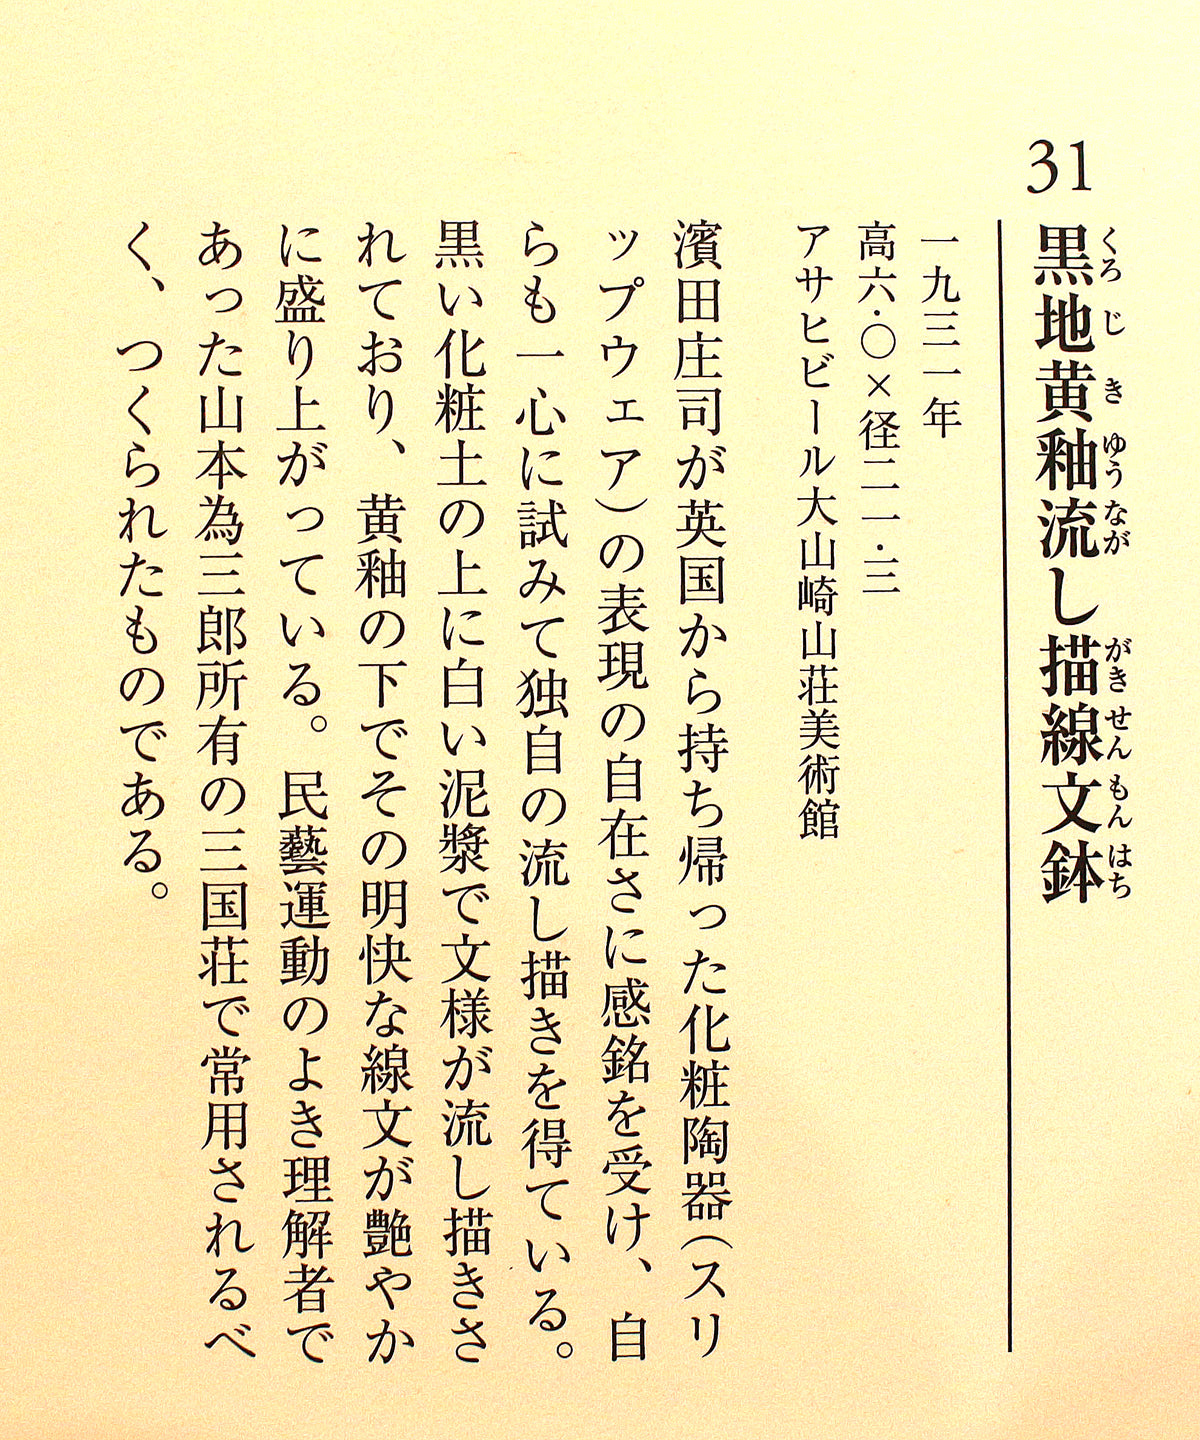 31
黒地黄釉流し描線文鉢
くろじきゆうながしがきせんもんはち
一九三一年
高六・〇×径二一・三
アサヒビール大山崎山荘美術館
濱田庄司が英国から持ち帰った化粧陶器(スリ
ップウェア)の表現の自在さに感銘を受け、自
らも一心に試みて独自の流し描きを得ている。
黒い化粧土の上に白い泥漿で文様が流し描きさ
れており、黄釉の下でその明快な線文が艶やか
に盛り上がっている。民藝運動のよき理解者で
あった山本為三郎所有の三国荘で常用されるべ
く、つくられたものである。